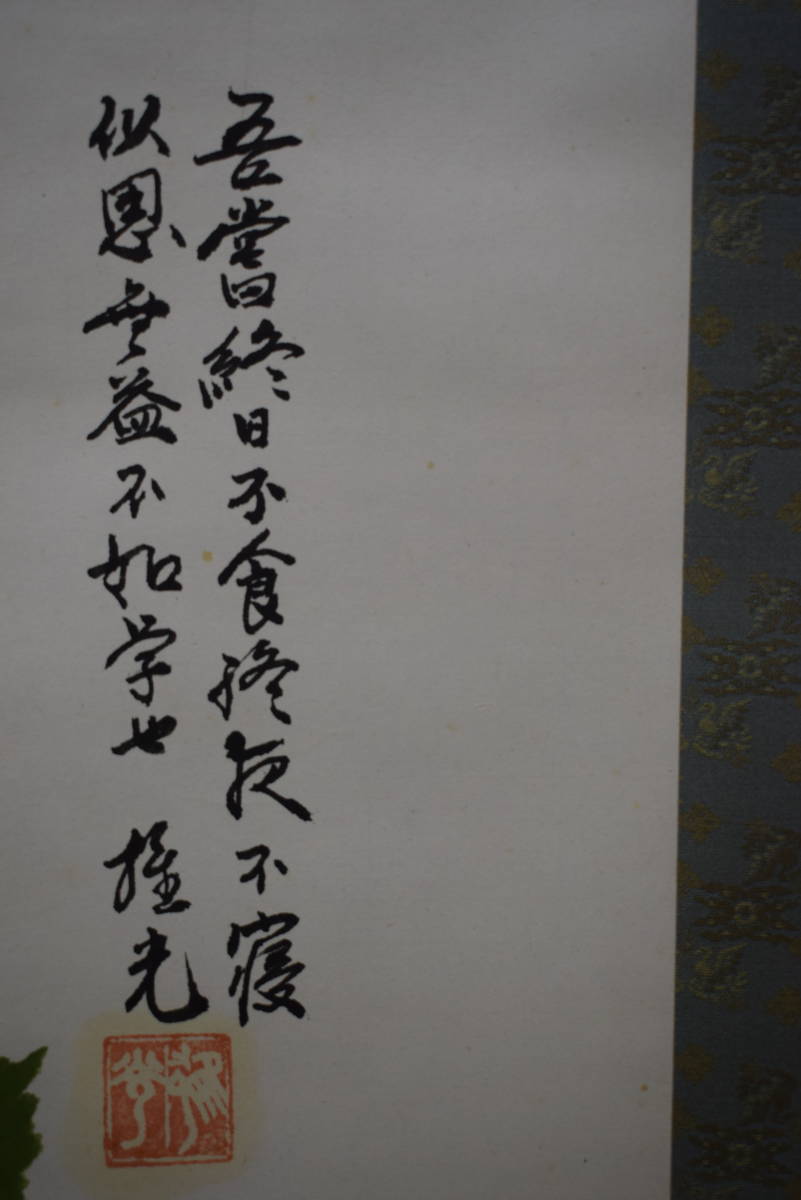 吾嘗終日不食終夜不寝
以思無益不如学也 権光